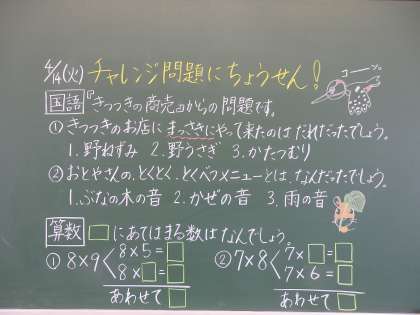 4/14(火) チャレンジ問題にちょうせん!
コーン。
国語 『きつつきの商売』からの問題です。
① きつつきのお店にまっさきにやって来たのはだれだったでしょう。
1. 野ねずみ 2. 野うさぎ 3. かたつむり
② おとやさんの、とくとく、とくべつメニューとは、なんだったでしょう。
1. ぶなの木の音 2. かぜの音 3. 雨の音
算数 □にあてはまる数はなんでしょう。
① 8×9 < 8×5=□ ② 7×8 < 7×□=□
8×□=□ 7×6=□
あわせて□ あわせて□